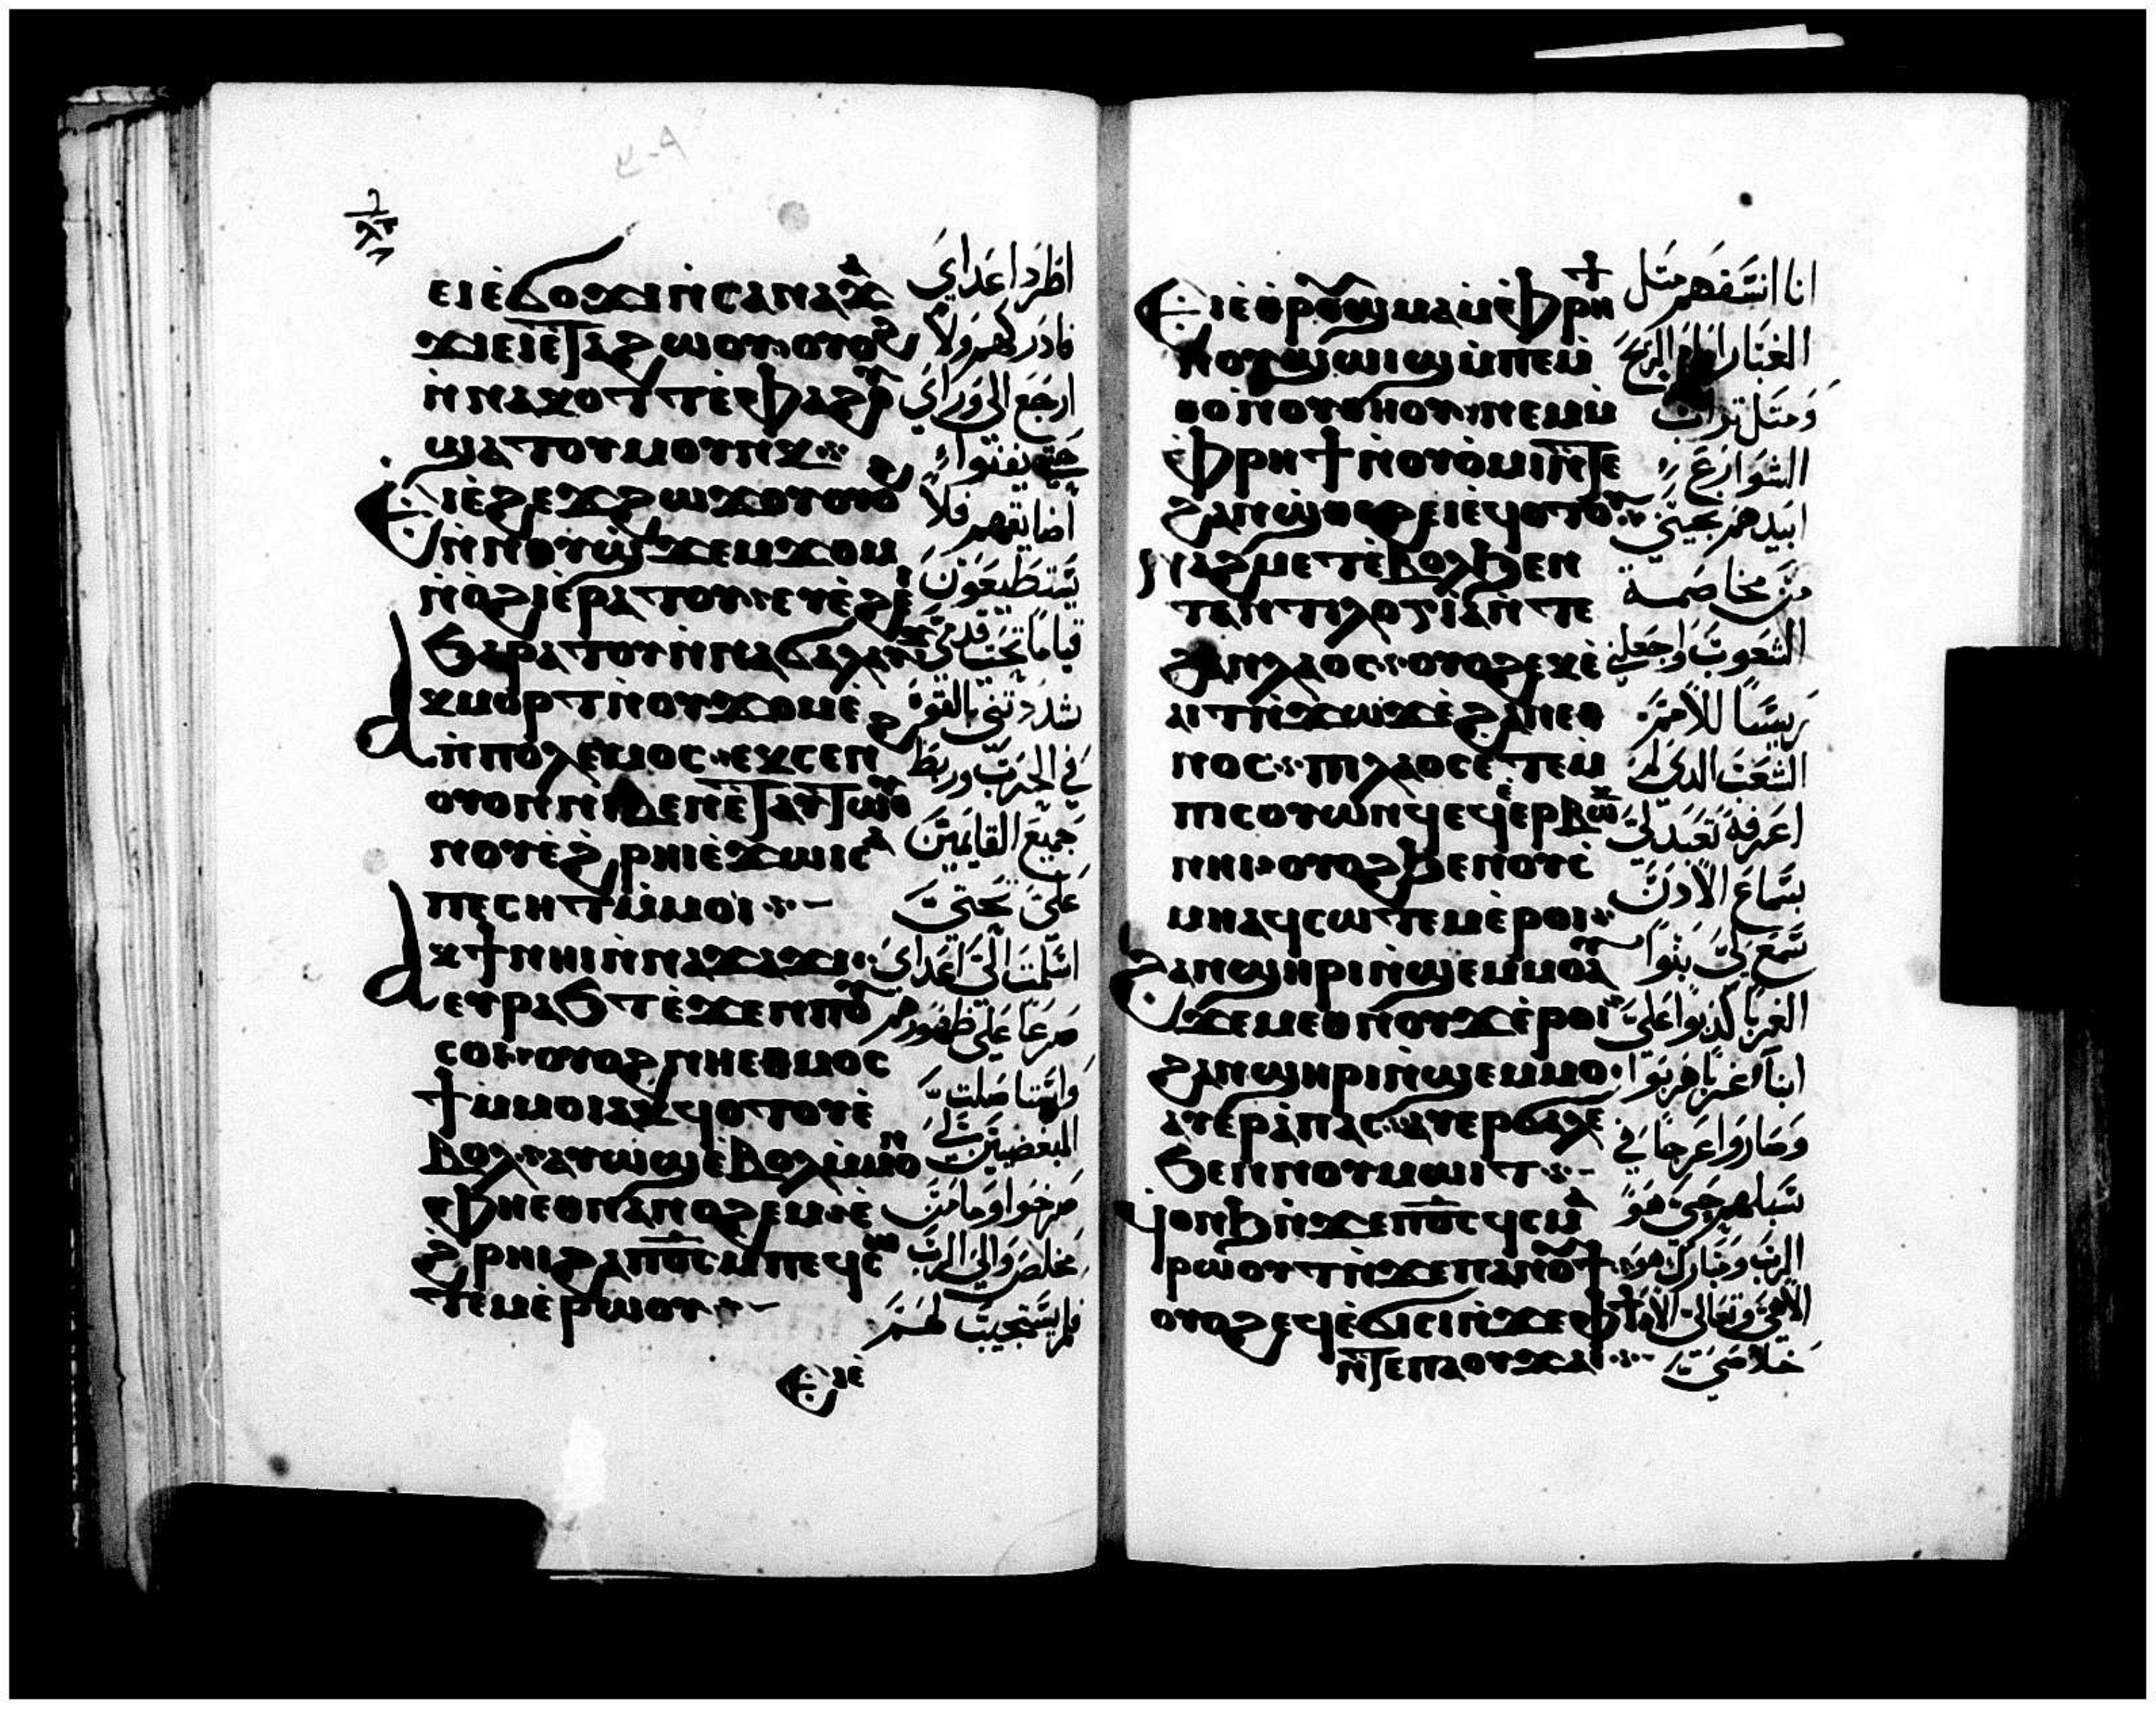 ⲉⲓⲉ̀ϭⲟϫⲓ ⲛ̀ⲥⲁ ⲛⲁϫⲁ
ϫⲓ ⲉⲓⲉ̀ⲧⲁϩⲱⲟⲩ ⲟⲩⲟϩ
ⲛ̀ⲛⲁⲕⲟⲧⲧ ⲉ̀ⲫⲁϩⲟⲩ
ϣⲁⲧⲟⲩⲙⲟⲩⲛⲕ
Ⲉⲓⲉ̀ϩⲉϫϩⲱϫⲟⲩ ⲟⲩⲟϩ
ⲛ̀ⲛⲟⲩϣ̀ϫⲉⲙϫⲟⲙ
ⲛ̀ⲟ̀ϩⲓ ⲉ̀ⲣⲁⲧⲟⲩ ⲉⲩⲉ̀ϩⲉⲓ
ϧⲁⲣⲁⲧⲟⲩ ⲛ̀ⲛⲁϭⲁⲗⲁⲩϫ
Ⲁⲕⲙⲟⲣⲧ ⲛ̀ⲟⲩϫⲟⲙ ⲉ̀
ⲡ̀ⲡⲟⲗⲉⲙⲟⲥ ⲉⲕⲥⲉⲛϩ
ⲟⲩⲟⲛ ⲛⲓⲃⲉⲛ ⲉ̀ⲧⲁⲩⲧⲱⲟⲩ
ⲛⲟⲩ ⲉ̀ϩⲣⲏⲓ ⲉ̀ϫⲱⲓ ⲥⲁ
ⲡⲉⲥⲏⲧ ⲙ̀ⲙⲟⲓ
Ⲁⲕϯ ⲛⲏⲓ ⲛ̀ⲛⲁϫⲁϫⲓ
ⲉⲩⲣⲁϧⲧ ⲉ̀ϫⲉⲛ ⲡⲟⲩ
ⲥⲟⲓ ⲟⲩⲟϩ ⲛⲏⲉⲑⲙⲟⲥ
ϯ ⲙ̀ⲙⲟⲓ ⲁⲕϥⲟⲧⲟⲩ ⲉ̀
ⲃⲟⲗ ⲁⲩⲱϣ ⲉ̀ⲃⲟⲗ ⲙ̀ⲙⲟⲛ
ⲫⲏⲉⲑⲛⲁⲛⲟϩⲉⲙ ⲉ̀
ϩⲣⲏⲓ ϩⲁ ⲡⲟ̅ⲥ̅ ⲙ̀ⲡⲉϥⲥⲱ
ⲧⲉⲙ ⲉ̀ⲣⲱⲟⲩ
Ⲉⲓⲉ̀
اطرد اعداي
فادركهم ولا
ارجع الى وراي
حتى يفنوا
أضايقهم فلا
يستطيعون
قياما تحت قدمي
شددتني بالقوة
في الحرب وربط
جميع القايمين
على تحتي
اسلمت الي اعداي
صرعا على ظهورهم
المبغضين لي
صرخوا وما من
مخلص والى الرب
فلم يستجيب لهم
Ⲉⲓⲉ̀ⲑⲣⲟⲩϣⲙⲁ ⲙ̀ⲫⲣⲏϯ
ⲛⲟⲩϣⲱⲓϣ ⲙ̀ⲡⲉⲙ̀
ⲑⲟ ⲛ̀ⲟⲩⲑⲏⲟⲩ ⲛⲉⲙ
ⲙ̀ⲫⲣⲏϯ ⲛ̀ⲟⲩⲟ̀ⲙⲓ ⲛ̀ⲧⲉ
ϩⲁⲛϣⲑⲉϩ ⲉⲓⲉϥⲟⲧⲟⲩ
Ⲛⲁϩⲙⲉⲧ ⲉ̀ⲃⲟⲗϧⲉⲛ
ⲧⲁⲛⲧⲓⲗⲟⲅⲓⲁ ⲛ̀ⲧⲉ
ϩⲁⲛⲗⲁⲟⲥ ⲟⲩⲟϩ ⲉⲕⲉ̀
ⲁⲓⲧ ⲛ̀ϫⲱϫ ⲉ̀ϩⲁⲛⲉⲑ
ⲛⲟⲥ ⲡⲓⲗⲁⲟⲥ ⲉ̀ⲧⲉⲙ
ⲡⲓⲥⲟⲩⲱⲛϥ ⲉϥⲉ̀ⲉⲣⲃⲱⲕ
ⲛⲏⲓ ⲟⲩⲟϩ ϧⲉⲛ ⲟⲩⲥ̀
ⲙⲏ ⲁϥⲥⲱⲧⲉⲙ ⲉ̀ⲣⲟⲓ
Ϩⲁⲛϣⲏⲣⲓ ⲛ̀ϣⲉⲙⲙⲟ ⲁⲩ
ϫⲉⲙⲉⲑⲛⲟⲩϫ ⲉ̀ⲣⲟⲓ
ϩⲁⲛϣⲏⲣⲓ ⲛ̀ϣⲉⲙⲙⲟ
ⲁⲩⲉⲣⲁ̀ⲡⲁⲥ ⲁⲩⲉⲣϭⲁⲗⲉ
ϧⲉⲛ ⲛⲟⲩⲙⲱⲓⲧ
Ϥⲟⲛϧ ⲛ̀ϫⲉ ⲡⲟ̅ⲥ̅ ϥⲥⲙⲁ̀
ⲣⲱⲟⲩⲧ ⲛ̀ϫⲉ ⲡⲁⲛⲟⲩϯ
ⲟⲩⲟϩ ⲉϥⲉ̀ϭⲓⲥⲓ ⲛ̀ϫⲉ ⲫϯ
ⲛ̀ⲧⲉ ⲡⲁⲟⲩϫⲁⲓ
انا انسفهم مثل
الغبار امام الريح
ومثل تراب
الشوارع
ابيدهم نجيني
من مخاصمة
الشعوب واجعلني
ريسا للامم
الشعب الذي لم
اعرفه تعبد لي
بسماع الاذن
سمع لي بنوا
الغربا كذبوا علي
ابنا غربا
وصاروا عرجا في
سبلهم حي هو
الرب ومبارك هو
الاهي وتعالى الاه
خلاصي